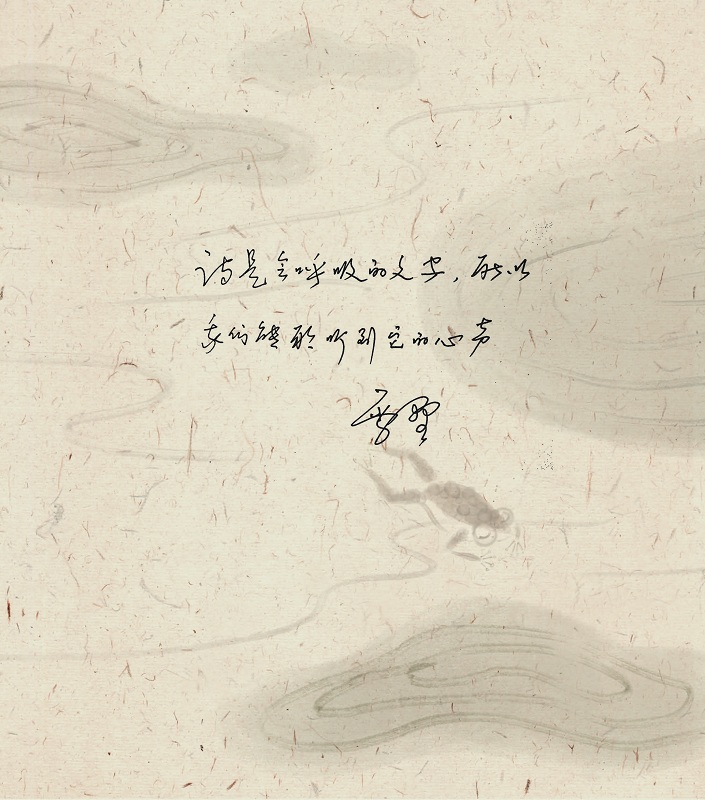 诗是会呼吸的文字，所以
我们能够听到它的心声
雪野